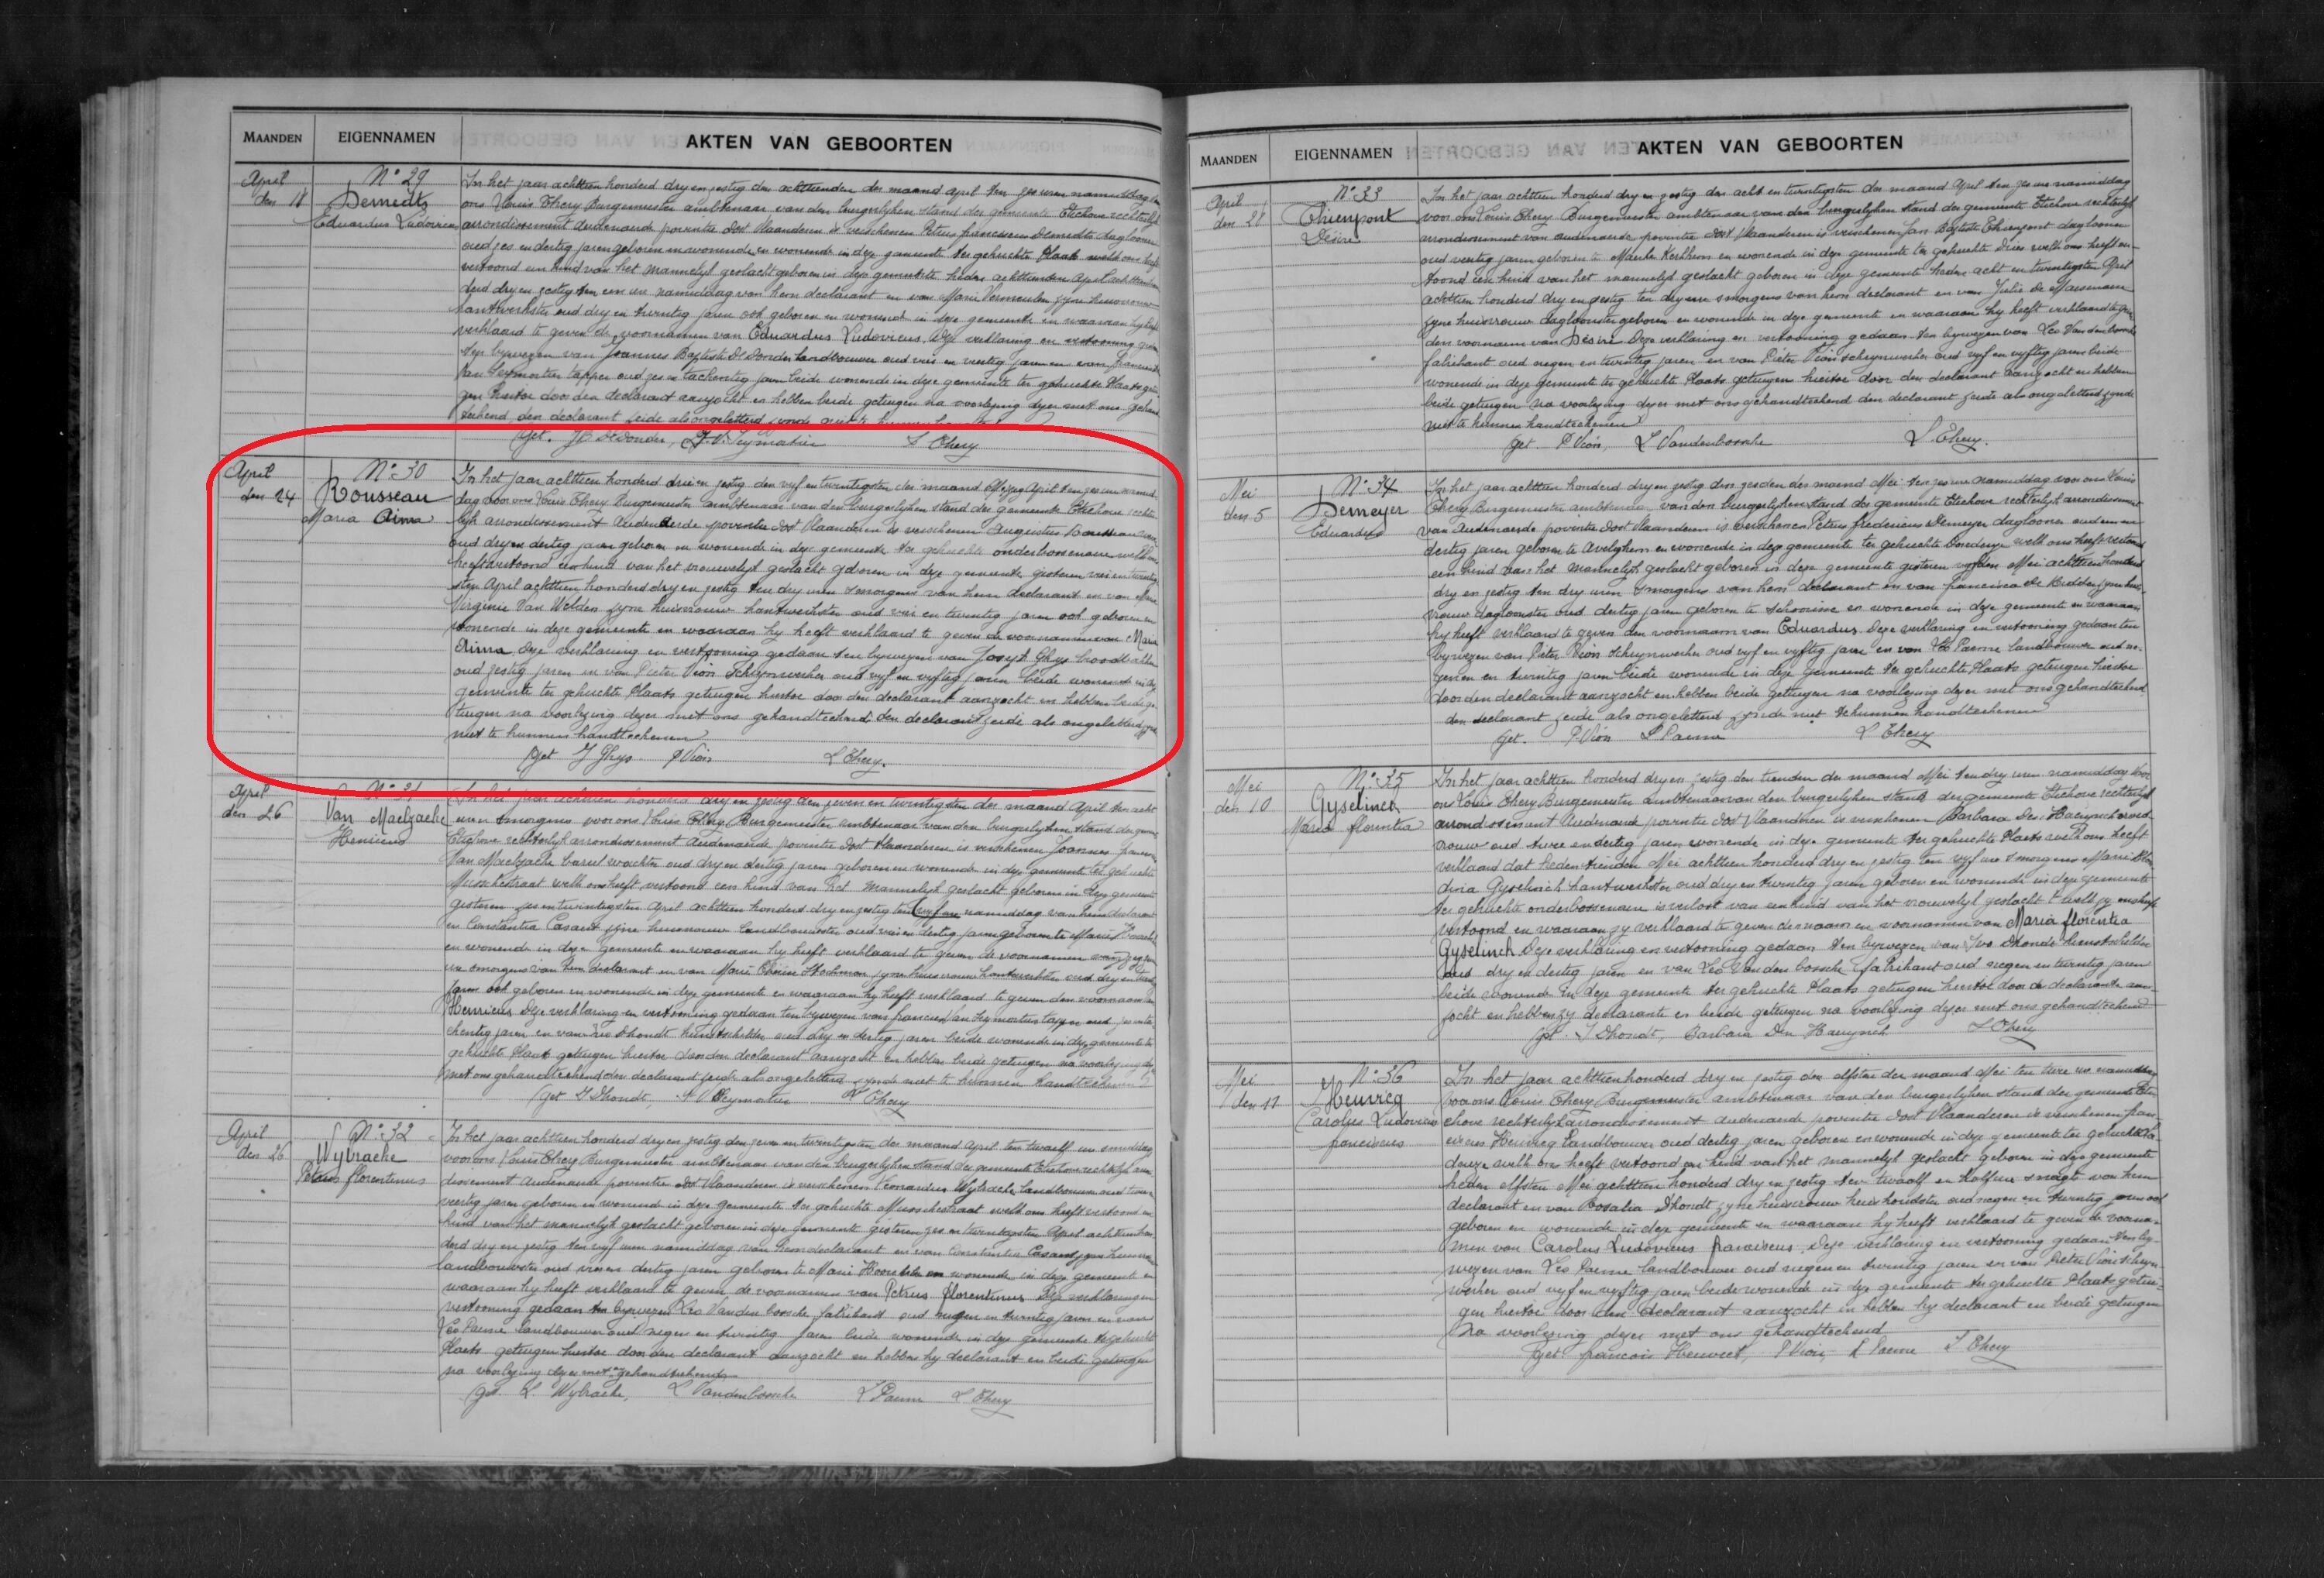 MAANDEN EIGENNAMEN AKTEN VAN GEBOORTEN
April
den 18
N° 29
Demedts
Eduardus Ludovicus
In het jaar achttien honderd dry en zestig den achttienden der maand april ten zes uren namiddag
ons Louis Thery Burgemeester ambtenaar van den burgerlyken stand der gemeente Etichove rechterlyk
arrondissement Audenaerde provintie Oost Vlaanderen is verschenen Petrus franciscus Demedts daglooner
oud zes en dertig jaren geboren en wonende in deze gemeente ter gehuchte Plaats welk ons heeft
vertoond een kind van het mannelyk geslacht geboren in deze gemeente heden achttienden April achttien hon-
derd dry en zestig ten een ure namiddag van hem declarant en van Marie Vermeulen zyne huisvrouw
kantwerkster oud dry en twintig jaren ook geboren en wonende in deze gemeente en waaraan hy heeft
verklaard te geven de voornamen van Eduardus Ludovicus. Deze verklaring en vertooning
ten bywezen van Joannes Baptiste De Donder landbouwer oud vier en veertig jaren en van francies
Van Seymortier tapper oud zes en tachentig jaren beide wonende in deze gemeente ter gehuchte Plaats getui-
gen hiertoe door den declarant aanzocht en hebben beide getuigen na voorlezing dezer met ons gehand-
teekend, den declarant zeide als ongeletterd zynde niet te kunnen
get. JB De Donder, F.V. Seymortier L Thery
April
den 24
N° 30
Rousseau
Maria Aima
In het jaar achttien honderd drie en zestig den vyf en twintigsten der maand April ten zes ure namid-
dag voor ons Louis Thery Burgemeester ambtenaar van den burgerlyken stand der gemeente Etichove rechter-
lyk arrondissement Audenaerde provintie Oost Vlaanderen is verschenen Augustus Rousseau
oud dry en dertig jaren geboren en wonende in deze gemeente ter gehuchte onderbossenare welk ons
heeft vertoond een kind van het vrouwelyk geslacht geboren in deze gemeente gisteren vier en twintig-
sten April achttien honderd dry en zestig ten dry uren smorgens van hem declarant en van
Virginie Van Welden zyne huisvrouw kantwerkster oud vier en twintig jaren ook geboren en
wonende in deze gemeente en waaraan hy heeft verklaard te geven de voornamen van Maria
Aima. Deze verklaring en vertooning gedaan ten bywezen van Joseph Ghys broodbakker
oud zestig jaren en van Pieter Vion Schrynwerker oud vyf en vyftig jaren beide wonende in deze
gemeente ter gehuchte Plaats getuigen hiertoe door den declarant aanzocht en hebben beide ge-
tuigen na voorlezing dezer met ons gehandteekend, den declarant zeide als ongeletterd zynde
niet te kunnen handteekenen
get J Ghys. P Vion L Thery.
April
den 26
N° 31
Van Maelzacke
Henricus
In het jaar achttien honderd dry en zestig den zeven en twintigsten der maand April ten acht
uren smorgens voor ons Louis Thery Burgemeester ambtenaar van den burgerlyken stand der gemeente
Etichove rechterlyk arrondissement Audenaerde provintie Oost Vlaanderen is verschenen Joannes
Van Maelzacke bareel wachter oud dry en dertig jaren geboren en wonende in deze gemeente ter gehuchte
Musschestraat welk ons heeft vertoond een kind van het mannelyk geslacht geboren in deze gemeente
gisteren zes en twintigsten April achttien honderd dry en zestig ten vyf ure namiddag van hem declarant
en Constantia Casant zyne huisvrouw landbouwster oud vier en dertig jaren geboren te Marie Hoorebeke
en wonende in deze gemeente en waaraan hy heeft verklaard te geven de voornamen
ure smorgens van hem declarant en van Marie Stockman zyne huisvrouw kantwerkster oud dry en
jaren ook geboren en wonende in deze gemeente en waaraan hy heeft verklaard te geven den voornaam van
Henricus Deze verklaring en vertooning gedaan ten bywezen van francies Van Seymortier tapper oud zes en ta-
chentig jaren en van Dhondt oud dry en dertig jaren beide wonende in deze gemeente te
gehuchte Plaats getuigen hiertoe door den declarant aanzocht en hebben beide getuigen na voorlezing dezer
met ons gehandteekend den declarant zeide als ongeletterd zynde niet te kunnen handteekenen
get Dhondt, Seymortier L Thery
April
den 26
N° 32
Wybracke
Petrus florentinus
In het jaar achttien honderd dry en zestig den zeven en twintigsten der maand April ten twaalf ure smiddag
voor ons Louis Thery Burgemeester ambtenaar van den burgerlyken stand der gemeente Etichove rechterlyk arron-
dissement Audenaerde provintie Oost Vlaanderen is verschenen Leonardus Wybracke landbouwer oud
veertig jaren geboren en wonende in deze gemeente ter gehuchte Musschestraat welk ons heeft vertoond een
kind van het mannelyk geslacht geboren in deze gemeente gisteren zes en twintigsten April achttien hon-
derd dry en zestig ten vyf uren namiddag van hem declarant en van Constantia Casant zyne huisvrouw
landbouwster oud vier en dertig jaren geboren te Marie Hoorebeke en wonende in deze gemeente en
waaraan hy heeft verklaard te geven de voornamen van Petrus florentinus Deze verklaring en
vertooning gedaan ten bywezen Leo Vanden bossche fabrikant oud negen en twintig jaren en van
Leo Paeme landbouwer oud negen en twintig jaren beide wonende in deze gemeente ter gehuchte
Plaats getuigen hiertoe door den declarant aanzocht en hebben hy declarant en beide getuigen
na voorlezing dezer met ons gehandteekend
get. L. Wybracke, L Vandenbossche L Paeme L Thery
MAANDEN EIGENNAMEN AKTEN VAN GEBOORTEN
April
den 28
N° 33
Thienpont
Désiré
In het jaar achttien honderd dry en zestig den acht en twintigsten der maand April ten zes ure namiddag
voor ons Louis Thery Burgemeester ambtenaar van den burgerlyken stand der gemeente Etichove rechterlyk
arrondissement van Audenaerde provintie Oost Vlaanderen is verschenen Jan Baptiste Thienpont daglooner
oud veertig jaren geboren te Maerke Kerkhem en wonende in deze gemeente ter gehuchte Dries welk ons heeft ver-
toond een kind van het mannelyk geslacht geboren in deze gemeente heden acht en twintigsten April
achttien honderd dry en zestig ten dry ure smorgens van hem declarant en van Julie de Maeseneire
zyne huisvrouw dagloonster geboren en wonende in deze gemeente en waaraan hy heeft verklaard te geven
den voornaam van Désiré. Deze verklaring en vertooning gedaan ten bywezen van Leo Vanden bossche
fabrikant oud negen en twintig jaren en van Pieter Vion schrynwerker oud vyf en vyftig jaren beide
wonende in deze gemeente ter gehuchte Plaats getuigen hiertoe door den declarant aanzocht en hebben
beide getuigen na voorlezing dezer met ons gehandteekend den declarant zeide als ongeletterd zynde
niet te kunnen handteekenen
get P Vion, L Vandenbossche L Thery.
Mei
den 5
N° 34
Demeyer
Eduardus
In het jaar achttien honderd dry en zestig den zesden der maand Mei ten zes ure namiddag voor ons Louis
Thery Burgemeester ambtenaar van den burgerlyken stand der gemeente Etichove rechterlyk arrondissement
van Audenaerde provintie Oost Vlaanderen is verschenen Petrus fredericus Demeyer daglooner oud een en
dertig jaren geboren te Avelghem en wonende in deze gemeente ter gehuchte welk ons heeft vertoond
een kind van het mannelyk geslacht geboren in deze gemeente gisteren vyfden Mei achttien honderd
dry en zestig ten dry uren smorgens van hem declarant en van francisca De Bodder zyne huis-
vrouw dagloonster oud dertig jaren geboren te Schoorisse en wonende in deze gemeente en waaraan
hy heeft verklaard te geven den voornaam van Eduardus. Deze verklaring en vertooning gedaan ten
bywezen van Pieter Vion Schrynwerker oud vyf en vyftig jaren en van Leo Paeme landbouwer oud ne-
genen en twintig jaren beide wonende in deze gemeente ter gehuchte Plaats getuigen hiertoe
door den declarant aanzocht en hebben beide getuigen na voorlezing dezer met ons gehandteekend
den declarant zeide als ongeletterd zynde niet te kunnen handteekenen
get. P Vion L Paeme L Thery
Mei
den 10
N° 35
Gyselinck
Maria florentia
In het jaar achttien honderd dry en zestig den tienden der maand Mei ten dry uren namiddag voor
ons Louis Thery Burgemeester ambtenaar van den burgerlyken stand der gemeente Etichove rechterlyk
arrondissement Audenaerde provintie Oost Vlaanderen is verschenen Barbara Den Haeynck vroed-
vrouw oud twee en dertig jaren wonende in deze gemeente ter gehuchte Plaats welk ons heeft
verklaard dat heden tienden Mei achttien honderd dry en zestig ten vyf ure smorgens Marie
Gyselinck kantwerkster oud dry en twintig jaren geboren en wonende in deze gemeente
ter gehuchte onderbossenare is verlost van een kind van het vrouwelyk geslacht t welk zy ons heeft
vertoond en waaraan zy verklaard te geven de naam en voornamen van Maria florentia
Gyselinck Deze verklaring en vertooning gedaan ten bywezen van Ivo Dhondt
oud dry en dertig jaren en van Leo Van den bossche fabrikant oud negen en twintig jaren
beide wonende in deze gemeente ter gehuchte Plaats getuigen hiertoe door de declarante aan-
zocht en hebben zy declarante en beide getuigen na voorlezing dezer met ons gehandteekend
get. I Dhondt, Barbara Den Haeynck L Thery
Mei
den 11
N° 36
Heuvicq
Carolus Ludovicus
franciscus
In het jaar achttien honderd dry en zestig den elfsten der maand Mei ten twee ure namiddag
voor ons Louis Thery Burgemeester ambtenaar van den burgerlyken stand der gemeente Eti-
chove rechterlyk arrondissement Audenaerde provintie Oost Vlaanderen is verschenen fran-
ciscus Heuvicq landbouwer oud dertig jaren geboren en wonende in deze gemeente ter gehuchte
welk ons heeft vertoond een kind van het mannelyk geslacht geboren in deze gemeente
heden elfsten Mei achttien honderd dry en zestig ten twaalf en half ure snagts van hem
declarant en van Rosalia Dhondt zyne huisvrouw huishoudster oud negen en twintig jaren ook
geboren en wonende in deze gemeente en waaraan hy heeft verklaard te geven de voorna-
men van Carolus Ludovicus franciscus. Deze verklaring en vertooning gedaan ten by-
wezen van Leo Paeme landbouwer oud negen en twintig jaren en van Pieter Vion schryn-
werker oud vyf en vyftig jaren beide wonende in deze gemeente ter gehuchte Plaats getui-
gen hiertoe door den declarant aanzocht en hebben hy declarant en beide getuigen
na voorlezing dezer met ons gehandteekend
get. francois Heuvicq, P Vion, L Paeme L Thery